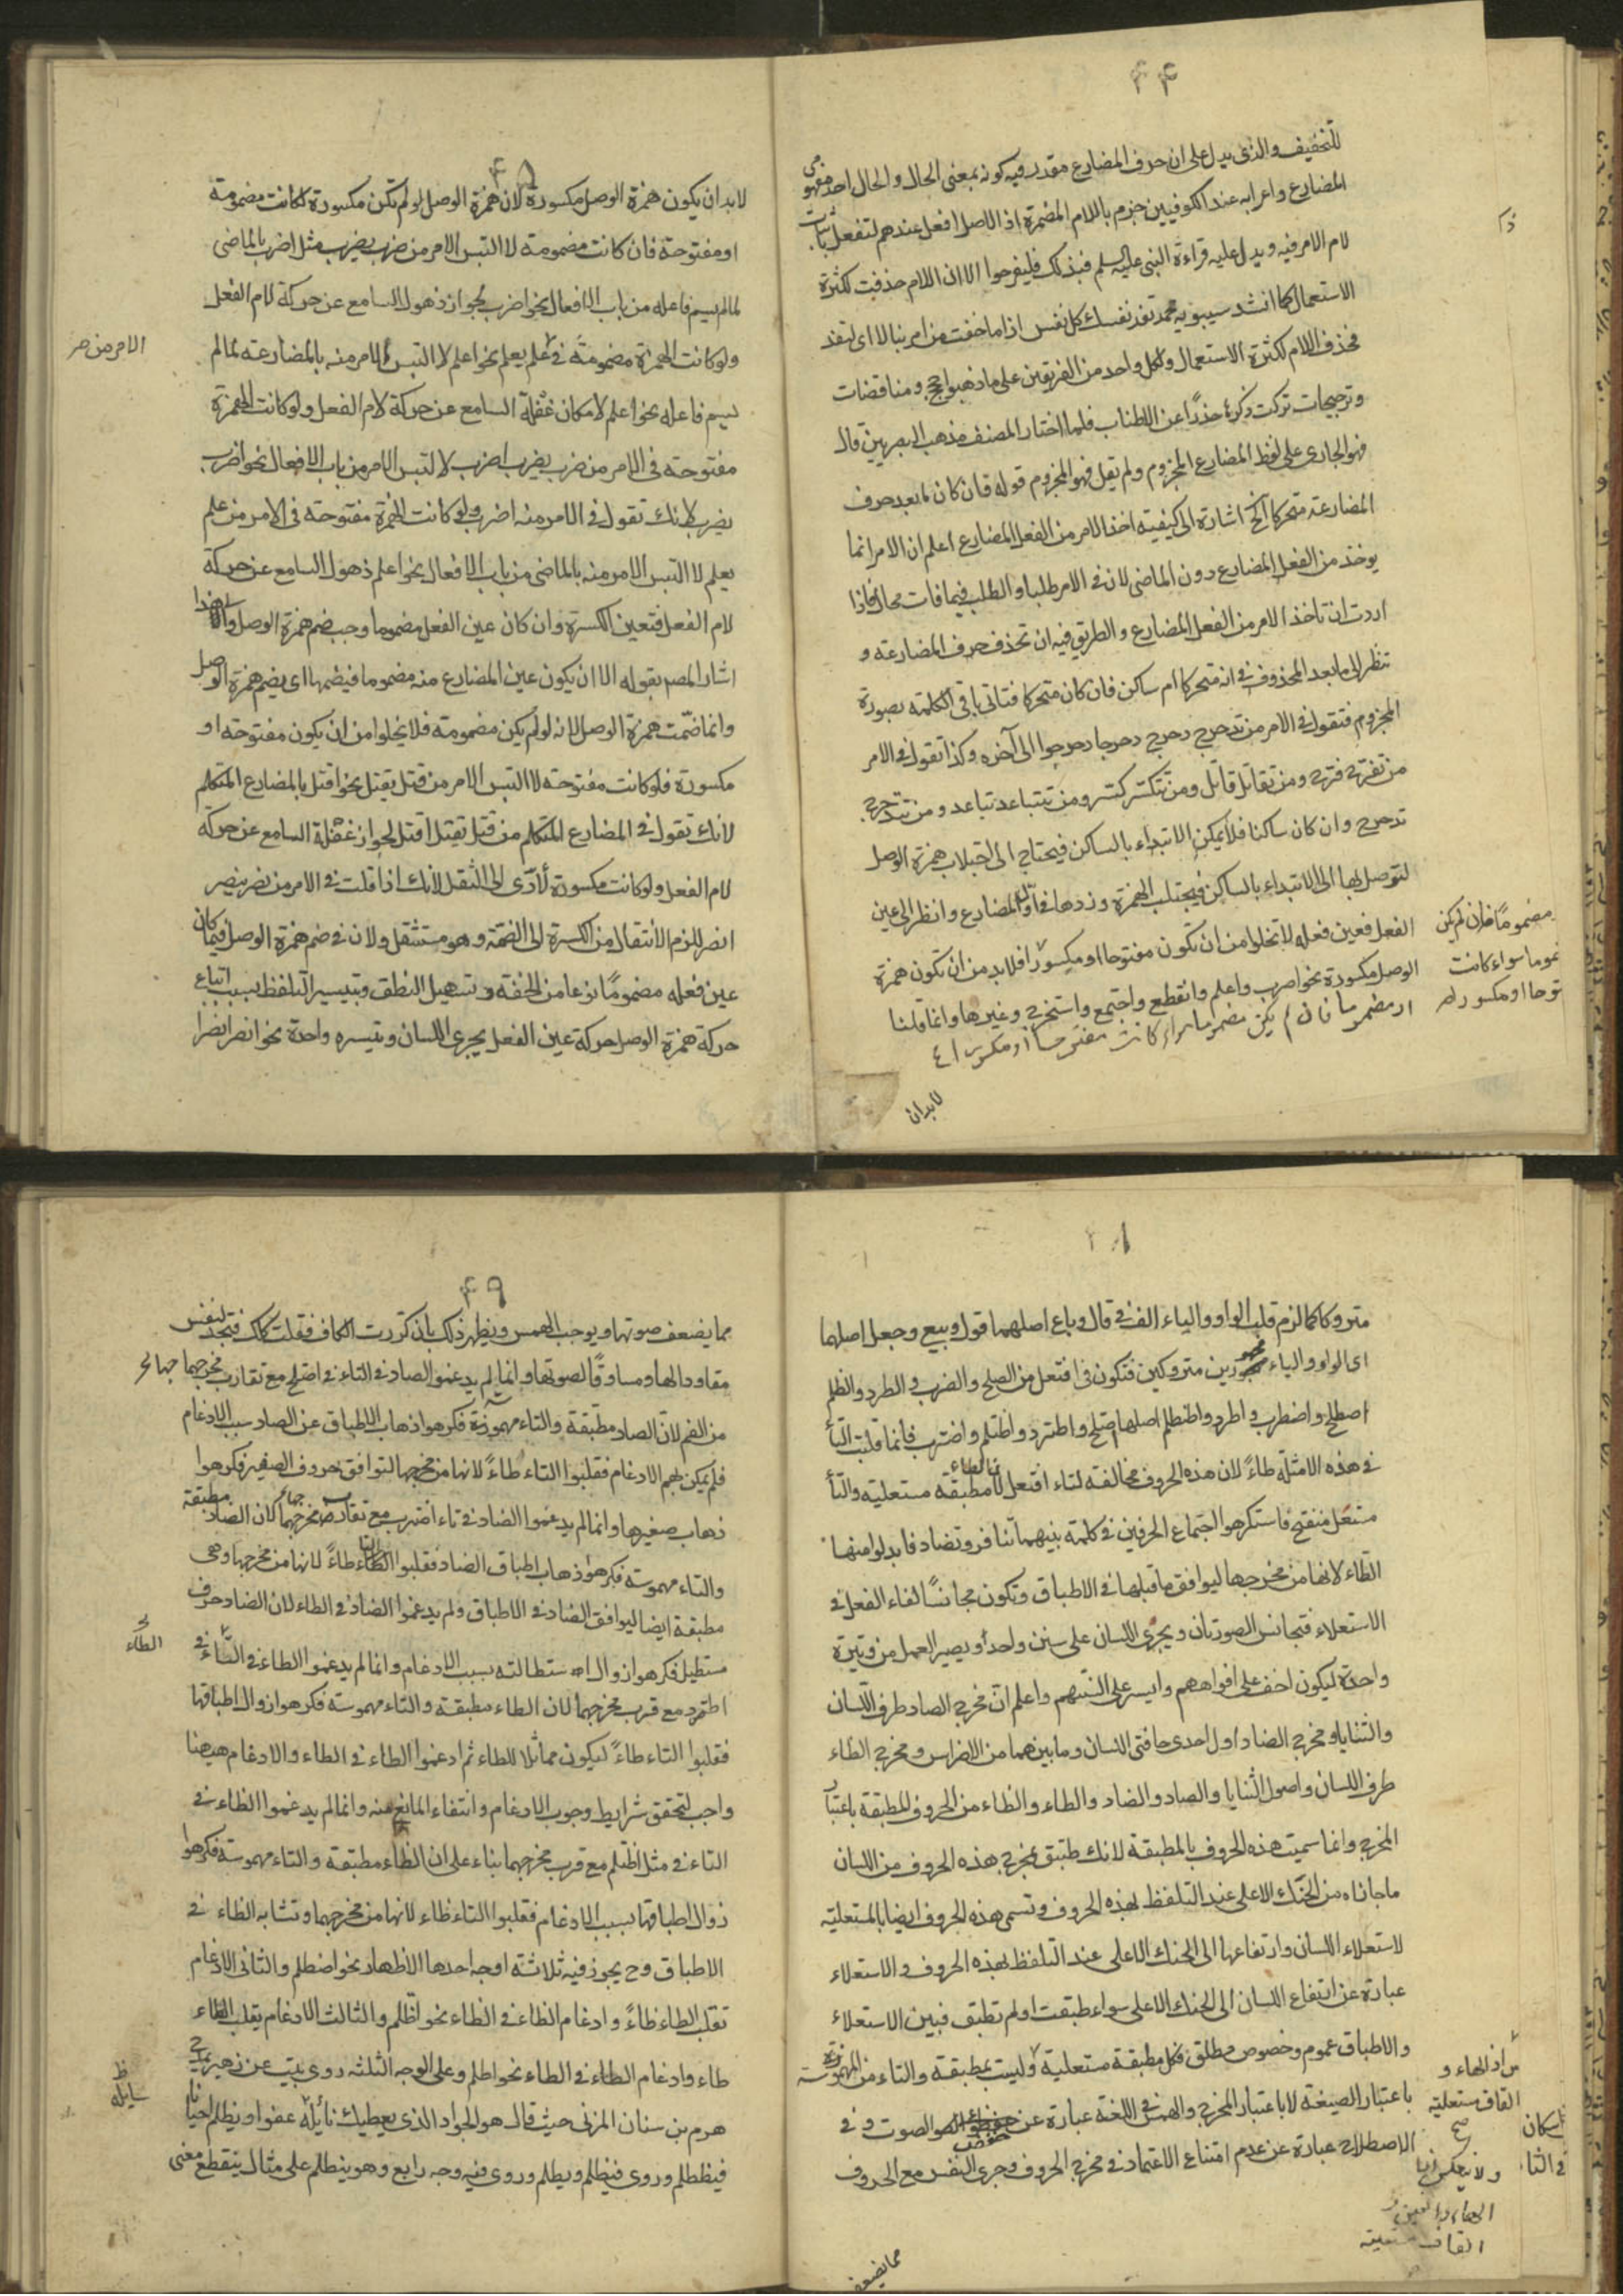 ۴۴
للتخفيف والذى يدل على ان حرف المضارع مقدر فيه كونه بمعنى الحال والحال احد مفهومى
المضارع واعرابه عند الكوفيين جزم باللام المضمرة اذ الاصل افعل عندهم لتفعل باثبات
لام الامر فيه ويدل عليه قراءة النبى عليه السلم فبذلك فليفرحوا الا ان اللام حذفت لكثرة
الاستعمال كما انشد سيبويه محمد تفد نفسك كل نفس اذا ما خفت من امر تبالا اى لتفد
فحذف اللام لكثرة الاستعمال ولكل واحد من الفريقين على ما ذهبوا حجج ومناقضات
وترجيحات تركت ذكره حذرًا عن الاطناب فلما اختار المصنف مذهب البصريين قال
فهو الجارى على لفظ المضارع المجزوم ولم يقل فهو المجزوم قوله فان كان ما بعد حرف
المضارعة متحركا الخ اشارة الى كيفية اخذ الامر من الفعل المضارع اعلم ان الامر انما
يوخذ من الفعل المضارع دون الماضى لان فى الامر طلبا والطلب فيما فات محال فاذا
اردت ان تاخذ الامر من الفعل المضارع والطريق فيه ان تحذف حرف المضارعة و
تنظر الى ما بعد المحذوف فى انه متحركا ام ساكن فان كان متحركا فتاتى باقى الكلمة بصورة
المجزوم فتقول فى الامر من تدحرج دحرج دحرجا دحرجوا الى آخره وكذا تقول فى الامر
من تفرح فرح ومن تقاتل قاتل ومن تتكسر تكسر ومن تتباعد تباعد ومن تتدحرج
تدحرج وان كان ساكنا فلا يمكن الابتداء بالساكن فيحتاج الى اجتلاب همزة الوصل
لتوصل بها الى الابتداء بالساكن فيجتلب الهمزة وزدها فى اول المضارع وانظر الى عين
الفعل فعين فعله لا تخلوا من ان تكون مفتوحا او مكسورا فلابد من ان تكون همزة
الوصل مكسورة نحو اضرب واعلم وانقطع واجتمع واستخرج وغيرها وانما قلنا
او مضموما فان لم يكن مضموما سواء كانت مفتوحا او مكسورا
مضمومًا فان لم يكن
موما سواء كانت
توحا او مكسورا
لابدان
۴۵
لابد ان يكون همزة الوصل مكسورة لان همزة الوصل لو لم تكن مكسورة لكانت مضمومة
او مفتوحة فان كانت مضمومة لالتبس الامر من ضرب يضرب مثل اضرب بالماضى
لما لم يسم فاعله من باب الافعال نحو اضرب لجواز ذهول السامع عن حركة لام الفعل
ولو كانت الهمزة مضمومة فى علم يعلم نحو اعلم لالتبس الامر منه بالمضارعة لما لم
يسم فاعله نحو اعلم لامكان غفلة السامع عن حركة لام الفعل ولو كانت الهمزة
مفتوحة فى الامر من ضرب يضرب اضرب لالتبس الامر من باب الافعال نحو اضرب
يضرب لانك تقول فى الامر منه اضرب ولو كانت الهمزة مفتوحة فى الامر من علم
يعلم لالتبس الامر منه بالماضى من باب الافعال نحو اعلم ذهول السامع عن حركة
لام الفعل فتعين الكسرة وان كان عين الفعل مضموما وجب ضم همزة الوصل والى هذا
اشار المصم بقوله الا ان يكون عين المضارع منه مضموما فيضمها اى يضم همزة الوصل
وانما ضمت همزة الوصل لانه لو لم يكن مضمومة فلا يخلوا من ان يكون مفتوحة او
مكسورة فلو كانت مفتوحة لالتبس الامر من قتل يقتل نحو اقتل بالمضارع المتكلم
لانك تقول فى المضارع المتكلم من قتل يقتل اقتل لجواز غفلة السامع عن حركة
لام الفعل ولو كانت مكسورة لأدّى الى الثقل لانك اذا قلت فى الامر من نصر ينصر
انصر للزم الانتقال من الكسرة الى الضمة وهو مستثقل ولان فى ضم همزة الوصل فيما كان
عين فعله مضمومًا نوعا من الخفة وتسهيل النطق وتيسير التلفظ بسبب اتباع
حركة همزة الوصل حركة عين الفعل يجرى اللسان وتيسره واحدة نحو انصر انصرا
الامر من ضر
متروكا كما لزم قلب الواو والياء الف فى قال وباع اصلهما قول وبيع وجعل اصلهما
اى الواو والياء مهجورين متروكين فتكون فى افتعل من الصلح والضرب والطرد والظلم
اصطلح واضطرب واطرد واظطلم اصلها اصتلح واطترد واظتلم واضترب فانما قلبت التأ
فى هذه الامثلة طاءً لان هذه الحروف مخالفة لتاء افتعل لانها مطبقة مستعلية والتأ
مستفل منفتح فاستكرهوا اجتماع الحرفين فى كلمة بينهما تنافر وتضاد فابدلوا منها
الطّاء لانها من مخرجها ليوافق ما قبلها فى الاطباق وتكون مجانسًا لفاء الفعل فى
الاستعلاء فتجانس الصوتان ويجرى اللسان على سنن واحد ويصير العمل من وتيرة
واحدة ليكون اخف على افواههم وايسر على السنتهم واعلم انّ مخرج الصاد طرف اللسان
والثنايا ومخرج الضاد اول احدى حافتى اللسان وما بينهما من الاضراس ومخرج الطاء
طرف اللسان واصول الثنايا والصاد والضاد والطاء والظاء من الحروف المطبقة باعتبار
المخرج وانما سميت هذه الحروف بالمطبقة لانك طبق بمخرج هذه الحروف من اللسان
ما حاذاه من الحنك الاعلى عند التلفظ بهذه الحروف وتسمى هذه الحروف ايضا بالمستعلية
لاستعلاء اللسان وارتفاعها الى الحنك الاعلى عند التلفظ بهذه الحروف والاستعلاء
عبارة عن ارتفاع اللسان الى الحنك الاعلى سواء طبقت او لم تطبق فبين الاستعلاء
والاطباق عموم وخصوص مطلق فكل مطبقة مستعلية وليست بمطبقة والتاء من المهموسة
باعتبار الصيغة لا باعتبار المخرج والهمس فى اللغة عبارة عن الصوت و فى
الاصطلاح عبارة عن عدم امتناع الاعتماد فى مخرج الحروف فجرى النفس مع الحروف
القاف مستعلية
صح
القاف مستعلية
مما يضعف
۴۹
مما يضعف صوتها ويوجب الهمس ويظهر ذلك بان كررت الكاف فقلت ككك فتجد لنفس
مقاودا لها ومساوقًا لصوتها وانما لم يدغموا الصاد فى التاء فى اصتلح مع تقارب مخرجهما
من الفم لانّ الصاد مطبقة والتاء مهموسة فكرهوا ذهاب الاطباق عن الصاد سبب الادغام
فلم يمكن لهم الادغام فقلبوا التاء طاءً لانها من مخرجها لتوافق حروف الصفير فكرهوا
ذهاب صفيرها وانما لم يدغموا الضاد فى تاء اضترب مع تقارب مخرجهما لان الضاد مطبقة
والتاء مهموسة فكرهوا ذهاب اطباق الضاد فقلبوا التاء طاءً لانها من مخرجها وهى
مطبقة ايضا ليوافق الضاد فى الاطباق ولم يدغموا الضاد فى الطاء لان الضاد حرف
مستطيل فكرهوا زوال الاستطالته بسبب الادغام وانما لم يدغموا الطاء فى التّاء فى
اطترد مع قرب مخرجهما لان الطاء مطبقة والتاء مهموسة فكرهوا زوال اطباقها
فقلبوا التاء طاءً ليكون مماثلا للطاء ثم ادغموا الطاء فى الطاء والادغام ههنا
واجب لتحقق شرايط وجوب الادغام وانتفاء المانع منه وانما لم يدغموا الظاء فى
التاء فى مثل اظتلم مع قرب مخرجهما بناء على ان الظاء مطبقة والتاء مهموسة فكرهوا
زوال اطباقها بسبب الادغام فقلبوا التاء طاء لانها من مخرجهما وتشابه الظاء فى
الاطباق وح يجوز فيه ثلاثة اوجه احدها الاظهار نحو اظطلم والثانى الادغام
تقلب الطاء ظاءً وادغام الظاء فى الظاء نحو اظّلم والثالث الادغام يقلب الظاء
طاء وادغام الطاء فى الطاء نحو اطلم وعلى الوجه الثلثة روى بيت عن زهير يمدح
هرم بن سنان المزنى حيث قال هو الجواد الذى يعطيك نائله عفوا ويظلم احيانا
فيظطلم وروى فيظلم ويطلم وروى فيه وجه رابع وهو ينظلم على مثال ينقطع معنى
الطاء
سايله